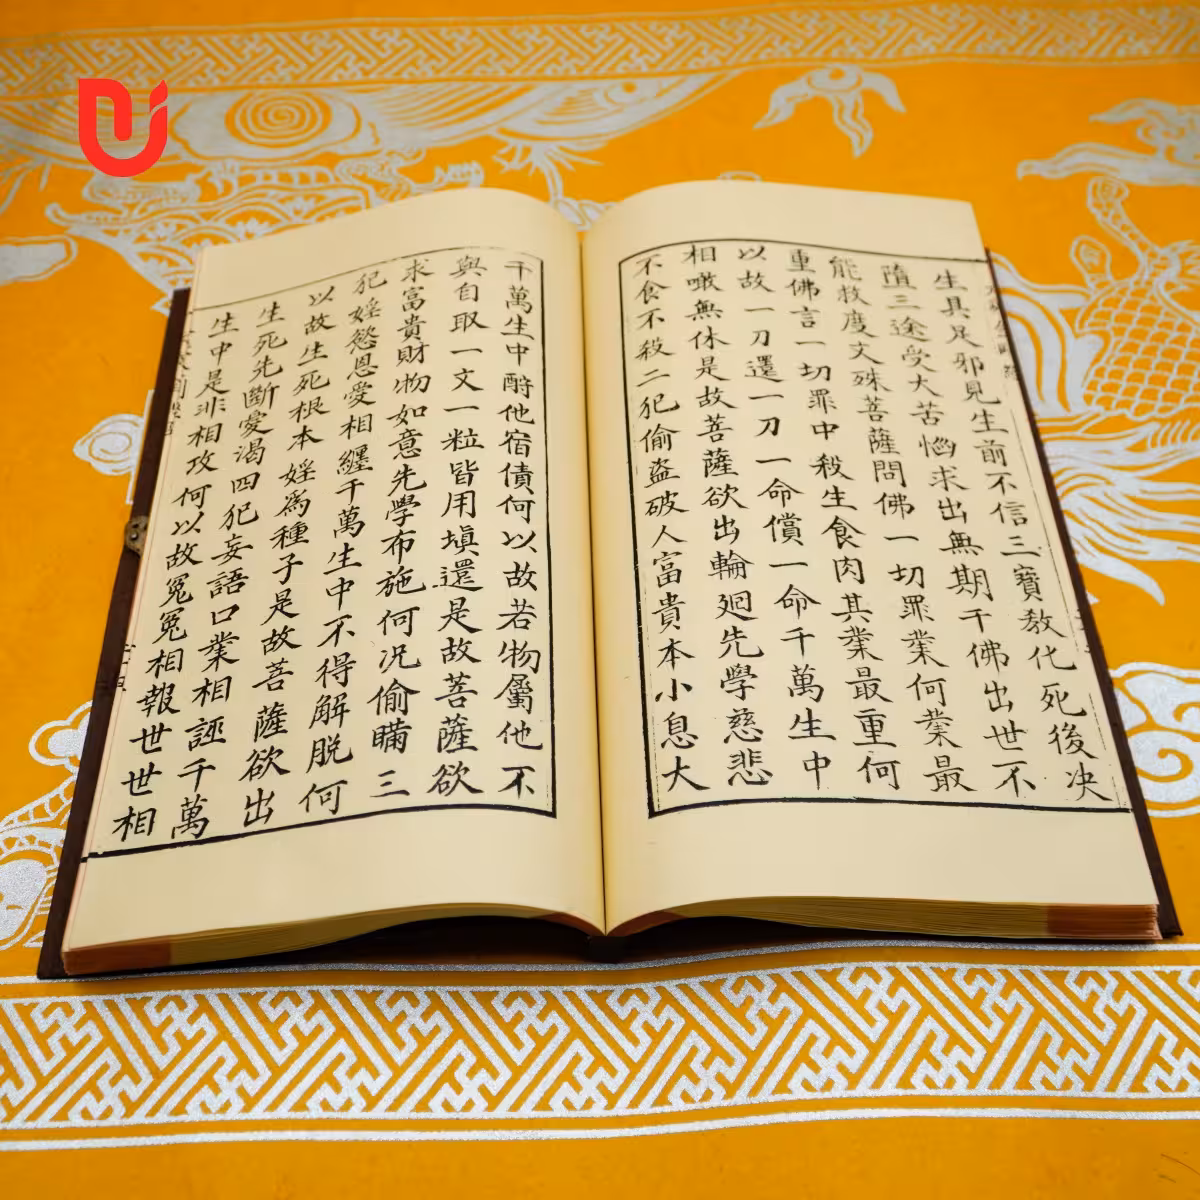 生具足邪見生前不信三寶教化死後决
墮三途受大苦惱求出無期千佛出世不
能救度文殊菩薩問佛一切罪業何業最
重佛言一切罪中殺生食肉其業最重何
以故一刀還一刀一命償一命千萬生中
相噉無休是故菩薩欲出輪廻先學慈悲
不食不殺二犯偷盗破人富貴本小息大
千萬生中酧他宿債何以故若物屬他不
與自取一文一粒皆用塡還是故菩薩欲
求富貴財物如意先學布施何况偷瞞三
犯婬慾恩愛相纒千萬生中不得解脱何
以故生死根本婬爲種子是故菩薩欲出
生死先斷愛渴四犯妄語口業相誣千萬
生中是非相攻何以故冤冤相報世世相